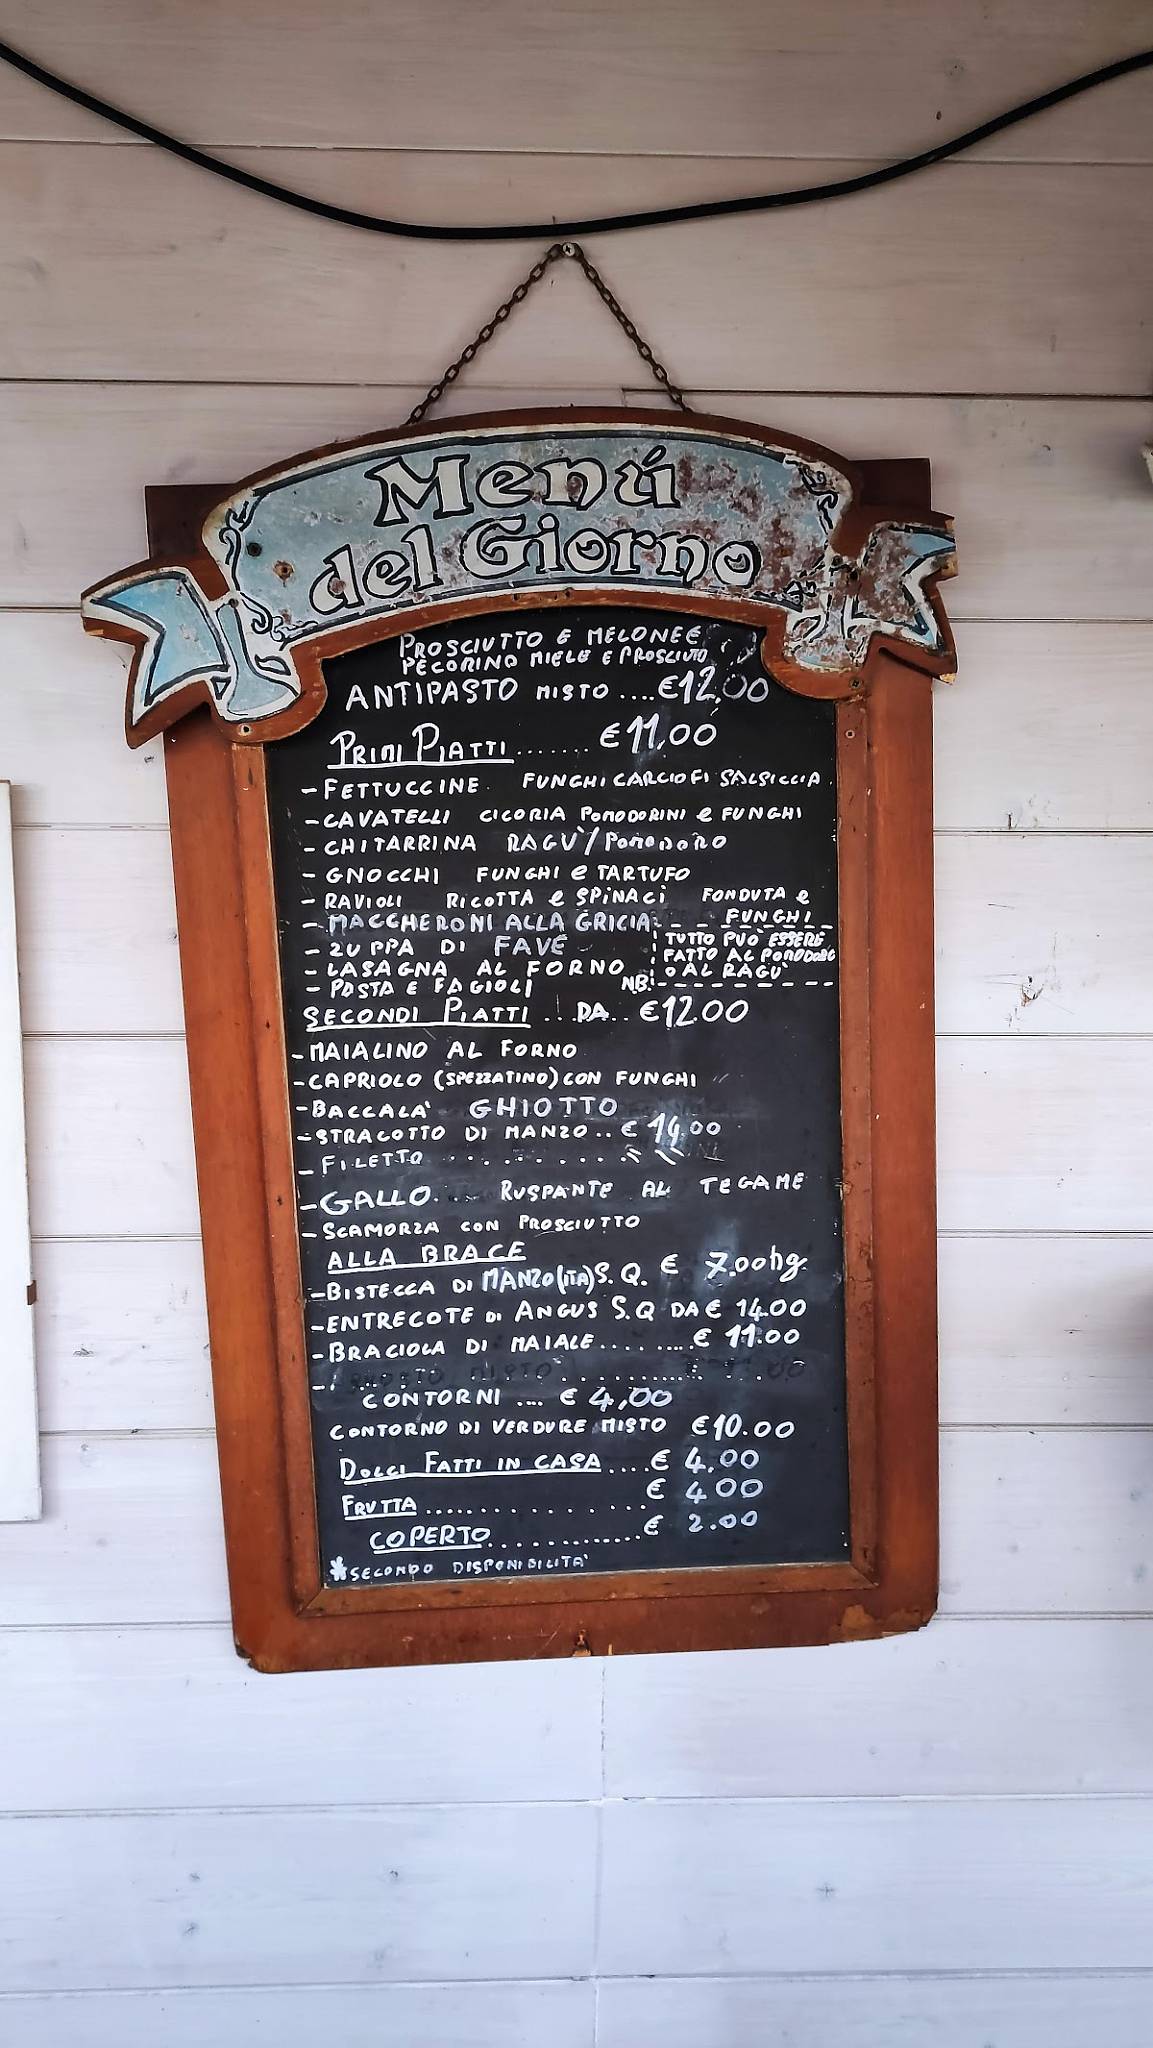 Menú
del Giorno
PROSCIUTTO E MELONE E
PECORINO MIELE E PROSCIUTO
ANTIPASTO MISTO ....€12,00
PRIMI PIATTI....... €11,00
-FETTUCCINE FUNGHI CARCIOFI SALSICCIA
-CAVATELLI CICORIA POMODORINI e FUNGHI
-CHITARRINA RAGÙ/POMODORO
-GNOCCHI FUNGHI e TARTUFO
-RAVIOLI RICOTTA e SPINACI FONDUTA e
FUNGHI
-MACCHERONI ALLA GRICIA
-ZUPPA DI FAVE
-LASAGNA AL FORNO
-PASTA E FAGIOLI
NB:
TUTTO PUÒ ESSERE
FATTO AL POMODORO
O AL RAGÙ
SECONDI PIATTI ...DA.. €12.00
-MAIALINO AL FORNO
-CAPRIOLO (SPEZZATINO) CON FUNGHI
-BACCALA' GHIOTTO
-STRACOTTO DI MANZO.. € 14,00
-FILETTO ..........
-GALLO... RUSPANTE AL TEGAME
-SCAMORZA CON PROSCIUTTO
ALLA BRACE
-BISTECCA DI MANZO(ITA) S.Q. € 7.00hg
-ENTRECOTE DI ANGUS S.Q DA € 14.00
-BRACIOLA DI MAIALE......... € 11.00
CONTORNI .... € 4,00
CONTORNO DI VERDURE MISTO €10.00
DOLCI FATTI IN CASA....€ 4.00
FRUTTA ..............€ 4.00
COPERTO.............€ 2.00
*SECONDO DISPONIBILITA'